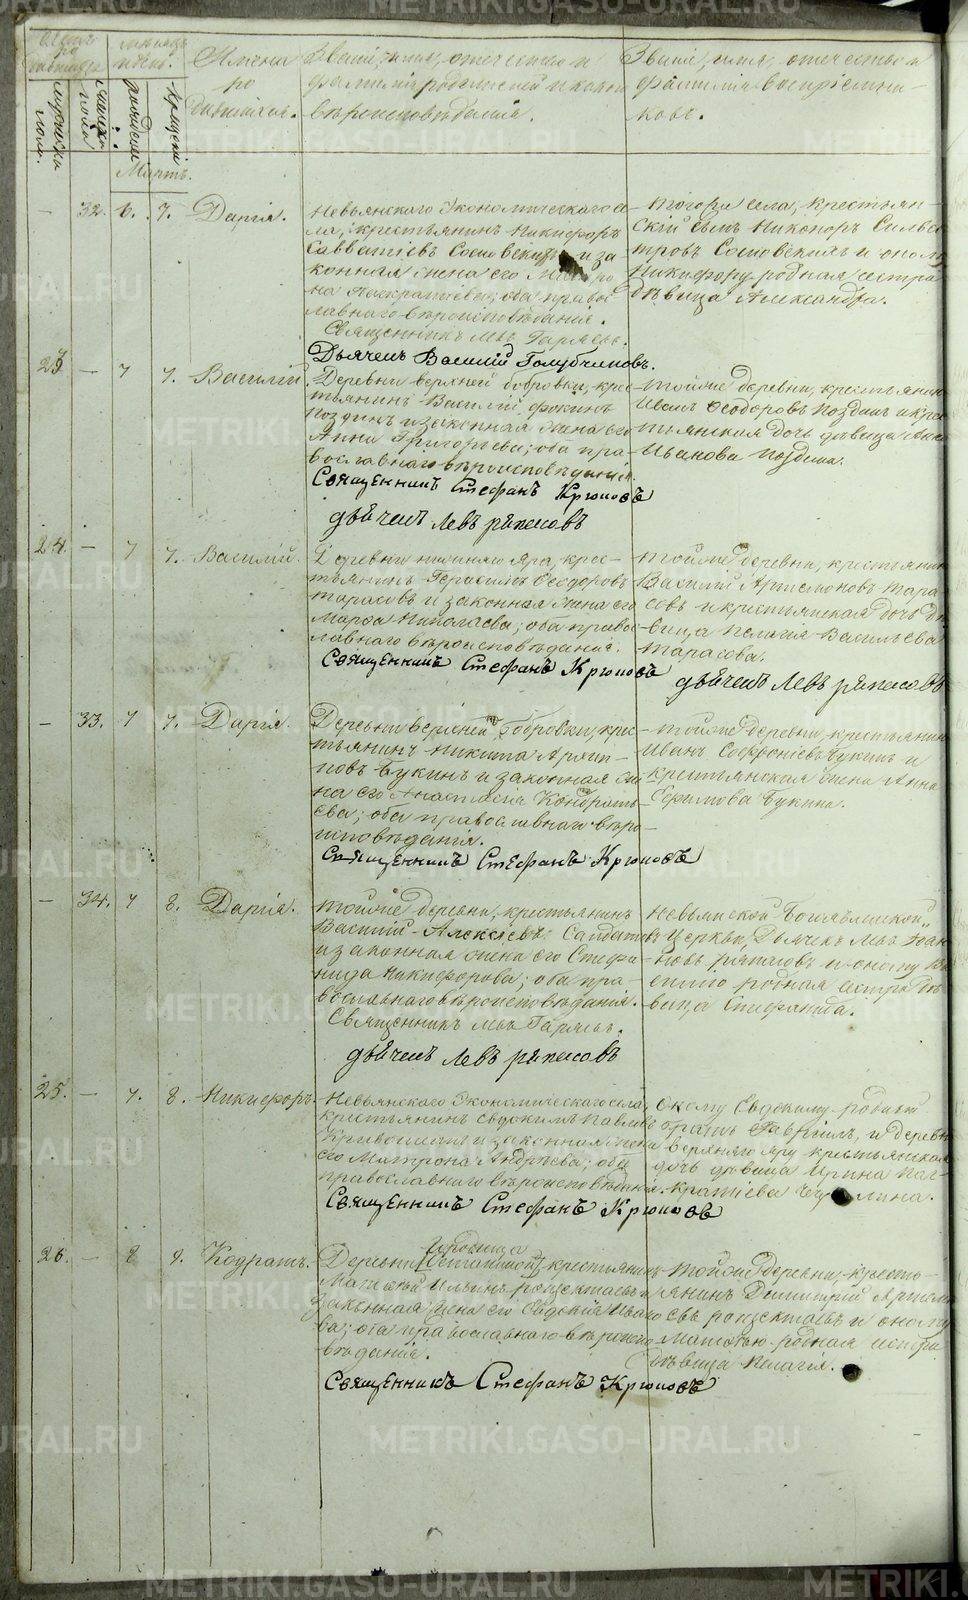 Счетъ родившихся
мѣсяцъ и день.
Имена родившихся.
Званіе, имя, отечество и
фамилія родителей и какого
вѣроисповѣданія.
Званіе, имя, отечество и
фамилія воспріемни-
ковъ.
мужеска пола.
женска пола.
рожденія
крещенія
Мартъ.
— 32. 6. 7. Дарія.
Невьянскаго Экономическаго се-
ла, крестьянинъ Никифоръ
Савватіевъ Сосновскихъ и за-
конная жена его Матро-
на Панкратіева; оба право-
славнаго вѣроисповѣданія.
Священникъ Левъ Гаряевъ.
Дьячекъ Василій Голубчиковъ.
Тогоже села, крестьян-
скій сынъ Никоноръ Сильве-
тровъ Сосновскихъ и оному
Никифору родная сестра
дѣвица Александра.
23 — 7 7. Василій.
Деревни верхней бобровки, крес-
тьянинъ Василій Фокинъ
Поздинъ и законная жена его
Анна Григорьева; оба пра-
вославнаго вѣроисповѣданія.
Священникъ Стефанъ Крюковъ
дьячекъ Левъ
Тойже деревни, крестьянинъ
Иванъ Ѳеодоровъ Поздинъ и крес-
тьянская дочь дѣвица Анна
Иванова Поздина.
24. — 7 7. Василій.
Деревни нижняго Яра, крес-
тьянинъ Герасимъ Ѳеодоровъ
Тарасовъ и законная жена его
Марѳа Николаева; оба правос-
лавнаго вѣроисповѣданія.
Священникъ Стефанъ Крюковъ
Тойже деревни, крестьянинъ
Василій Артемоновъ Тара-
совъ и крестьянская дочь дѣ-
вица Пелагія Васильева
Тарасова.
дьячекъ Левъ
— 33. 7 7. Дарія.
Деревни верхней бобровки, крес-
тьянинъ Никита
Букинъ и законная же-
на его Анастасія Кондрать-
ева; оба православнаго вѣро-
исповѣданія.
Священникъ Стефанъ Крюковъ
Тойже деревни, крестьянинъ
Иванъ Софроніевъ Букинъ и
крестьянская жена Анна
Ефимова Букина.
— 34. 7 8. Дарія.
Тойже деревни, крестьянинъ
Василій Алексіевъ
и законная жена его Стефа-
нида Никифорова; оба пра-
вославнаго вѣроисповѣданія.
Священникъ Левъ Гаряевъ.
дьячекъ Левъ
Невьянской Богоявленской
Церкви, Дьячекъ Левъ Іоан-
новъ и оному Ва-
силію родная сестра дѣ-
вица Стефанида.
25. — 7. 8. Никифоръ.
Невьянскаго Экономическаго села,
крестьянинъ Евдокимъ Павловъ
и законная жена
его Матрона Андреева; оба
православнаго вѣроисповѣданія.
Священникъ Стефанъ Крюковъ
Оному Евдокиму родной
братъ Гавріилъ, и деревни
верхняго Яру крестьянская
дочь дѣвица Ирина Пан-
кратіева
26. — 8 9. Кодратъ.
Деревни крестьянинъ
Ильинъ и
законная жена его Евдокія Ивано-
ва; оба православнаго вѣроиспо-
вѣданія.
Священникъ Стефанъ Крюковъ
Тойже деревни, кресть-
янинъ Димитрій
и оному
родная сестра
дѣвица Пелагія.
METRIKI.GASO-URAL.RU